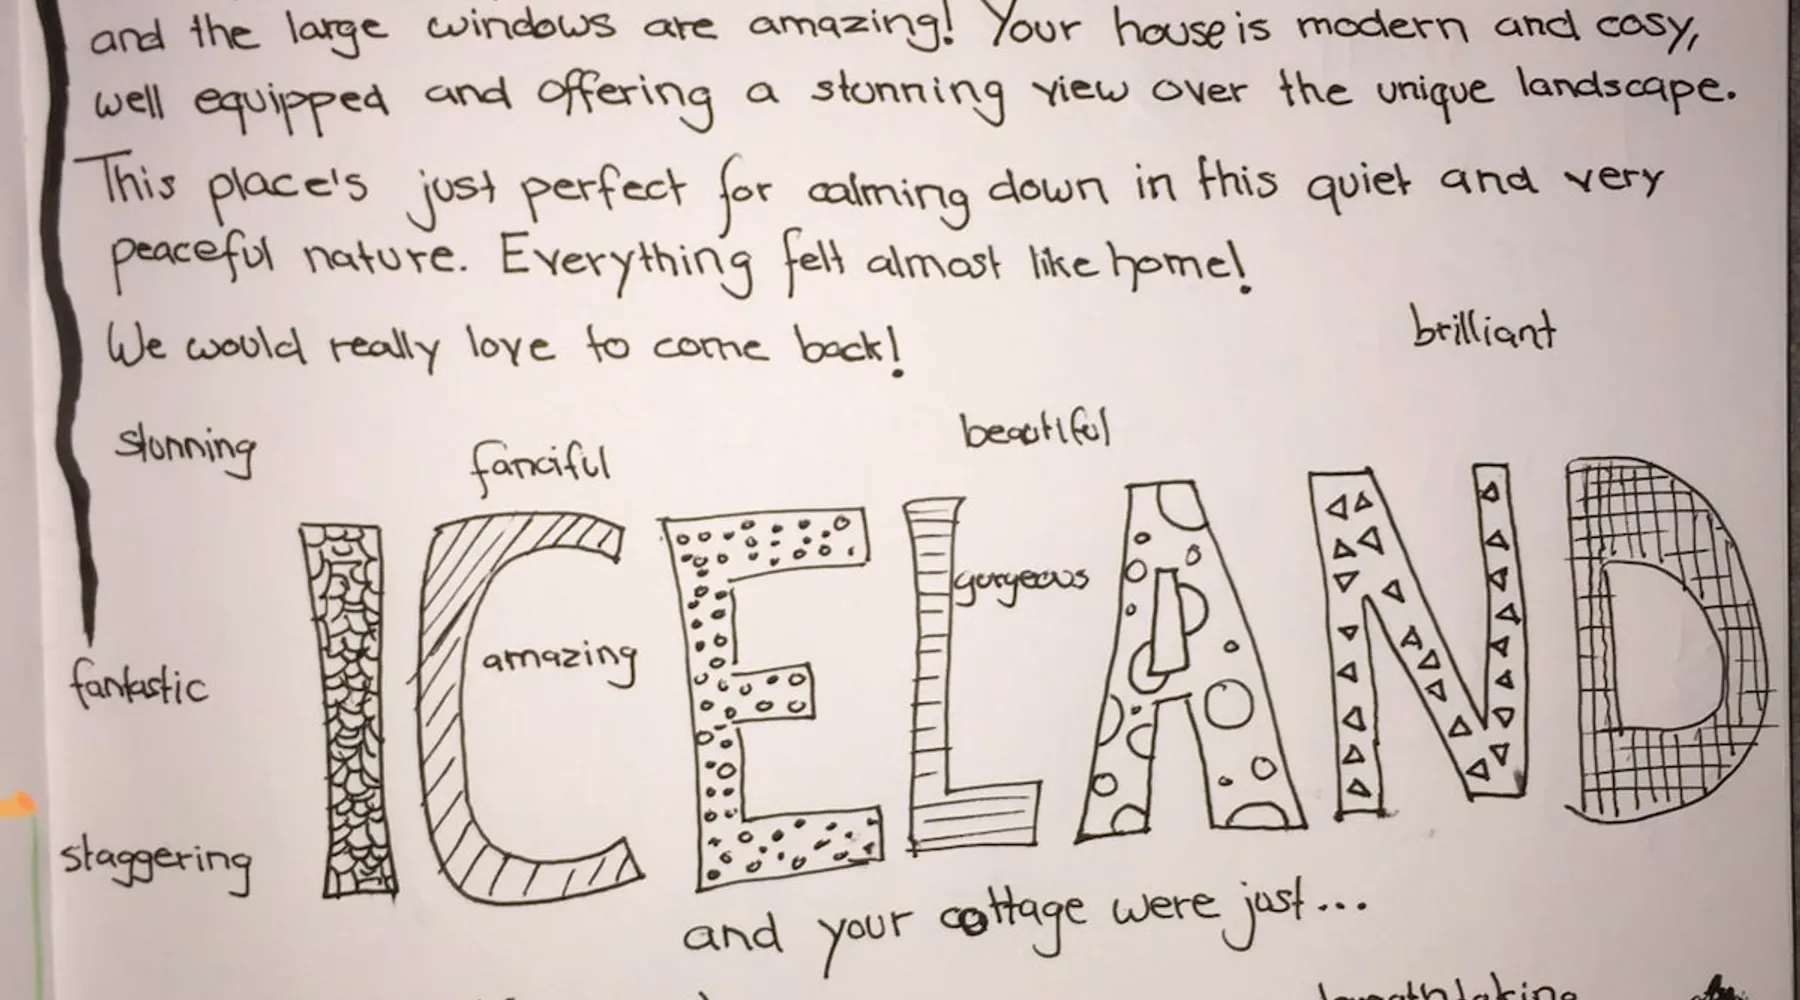 and the large windows are amazing! Your house is modern and cosy,
well equipped and offering a stunning view over the unique landscape.
This place's just perfect for calming down in this quiet and very
peaceful nature. Everything felt almost like home!
We would really love to come back!
brilliant
stunning
fanciful
beautiful
ICELAND
gorgeous
amazing
fantastic
staggering
and your cottage were just...
breathtaking